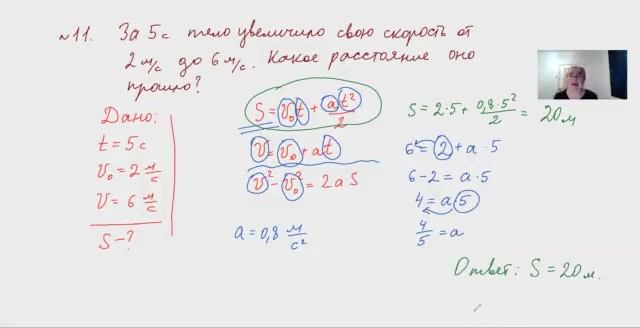 №11. За 5с тело увеличило свою скорость от
2 м/с до 6 м/с. Какое расстояние оно
прошло?
Дано:
t = 5с
v₀ = 2 м/с
v = 6 м/с
S - ?
S = v₀t + at²/2
v = v₀ + at
v² - v₀² = 2aS
a = 0,8 м/с²
S = 2·5 + 0,8·5²/2 = 20м
6 = 2 + a·5
6-2 = a·5
4 = a5
4/5 = a
Ответ: S = 20м.